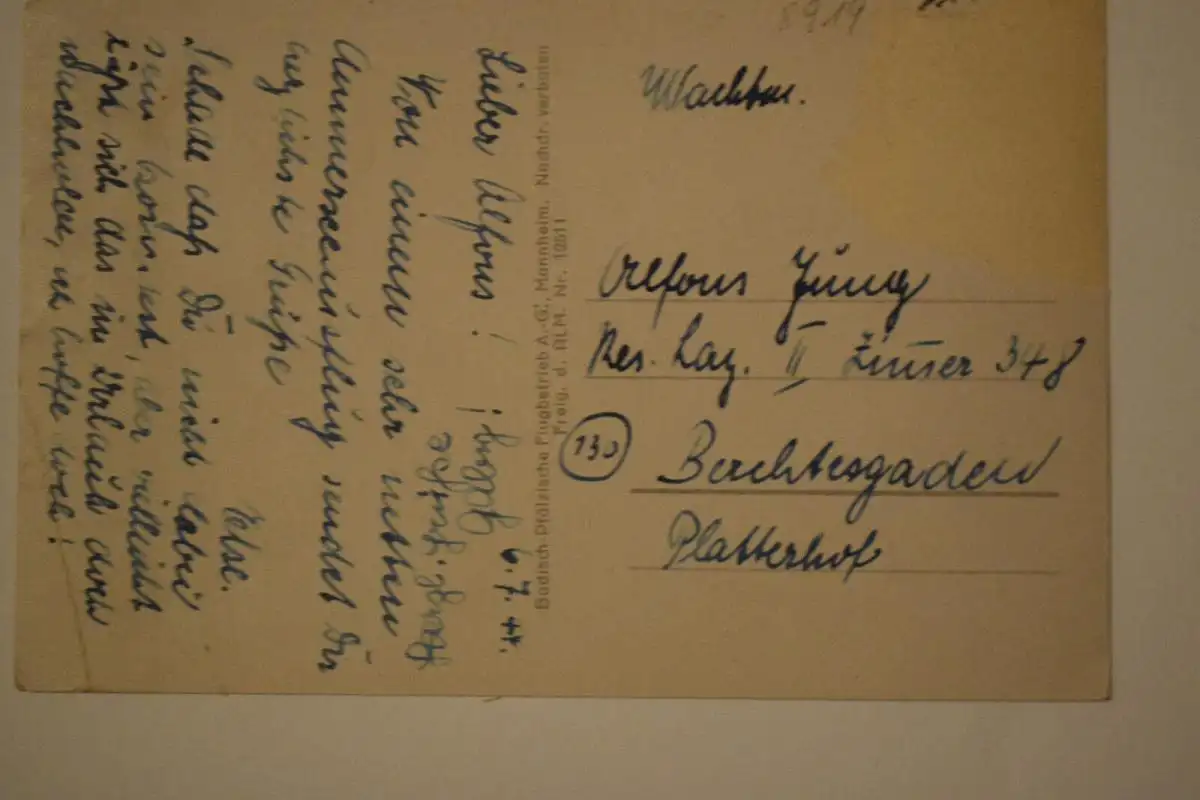 Lieber Alfons! 6.7.44.
Von einem sehr netten
Ammerseeausflug sendet Dir
herzlichste Grüße
Else.
Schade daß Du nicht dabei
sein konntest, aber vielleicht
läßt sich das im Urlaub doch
nachholen, ich hoffe doch!
Herzl. Grüße
Badisch-Pfälzische Flugbetrieb A.-G., Mannheim. Nachdr. verboten
Freig. d. RLM. Nr. 10511
8919
Wachtm.
Alfons Jung
Res. Laz. II Zimmer 348
13b
Berchtesgaden
Platterhof